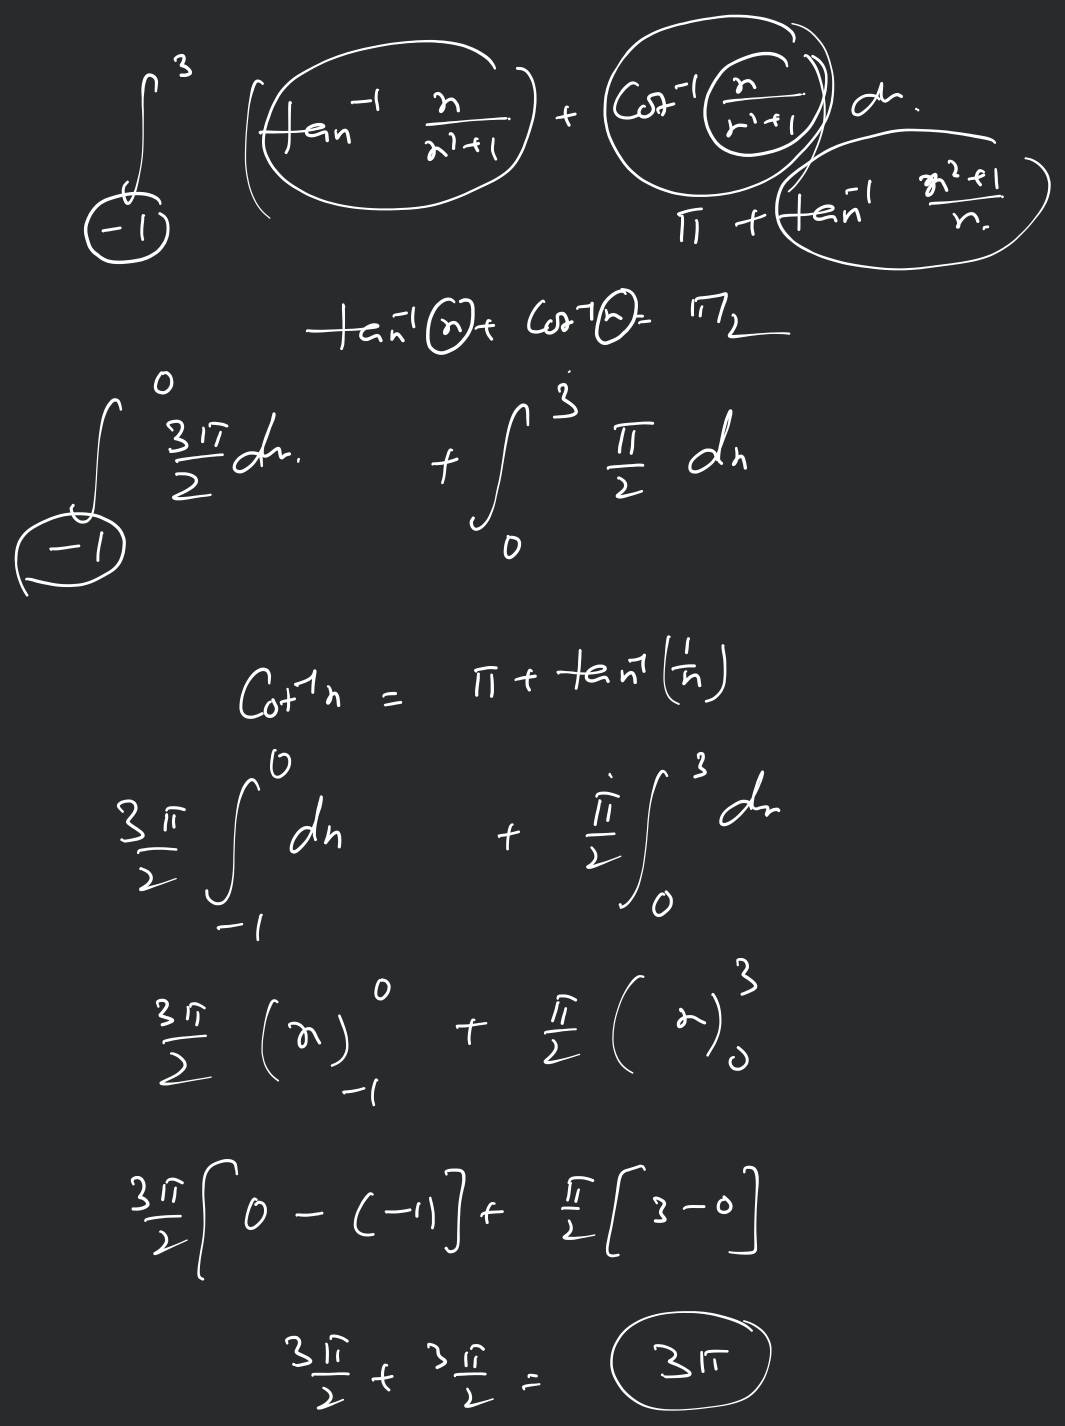 ∫_{-1}^{3} (tan⁻¹ x/(x²+1) + cot⁻¹ (x/(x²+1))) dx.
π + tan⁻¹ (x²+1)/x.
tan⁻¹(x) + cot⁻¹(x) = π/2
∫_{-1}^{0} 3π/2 dx. + ∫_{0}^{3} π/2 dx
Cot⁻¹x = π + tan⁻¹(1/x)
3π/2 ∫_{-1}^{0} dx + π/2 ∫_{0}^{3} dx
3π/2 (x)_{-1}^{0} + π/2 (x)_{0}^{3}
3π/2 [0 - (-1)] + π/2 [3-0]
3π/2 + 3π/2 = 3π